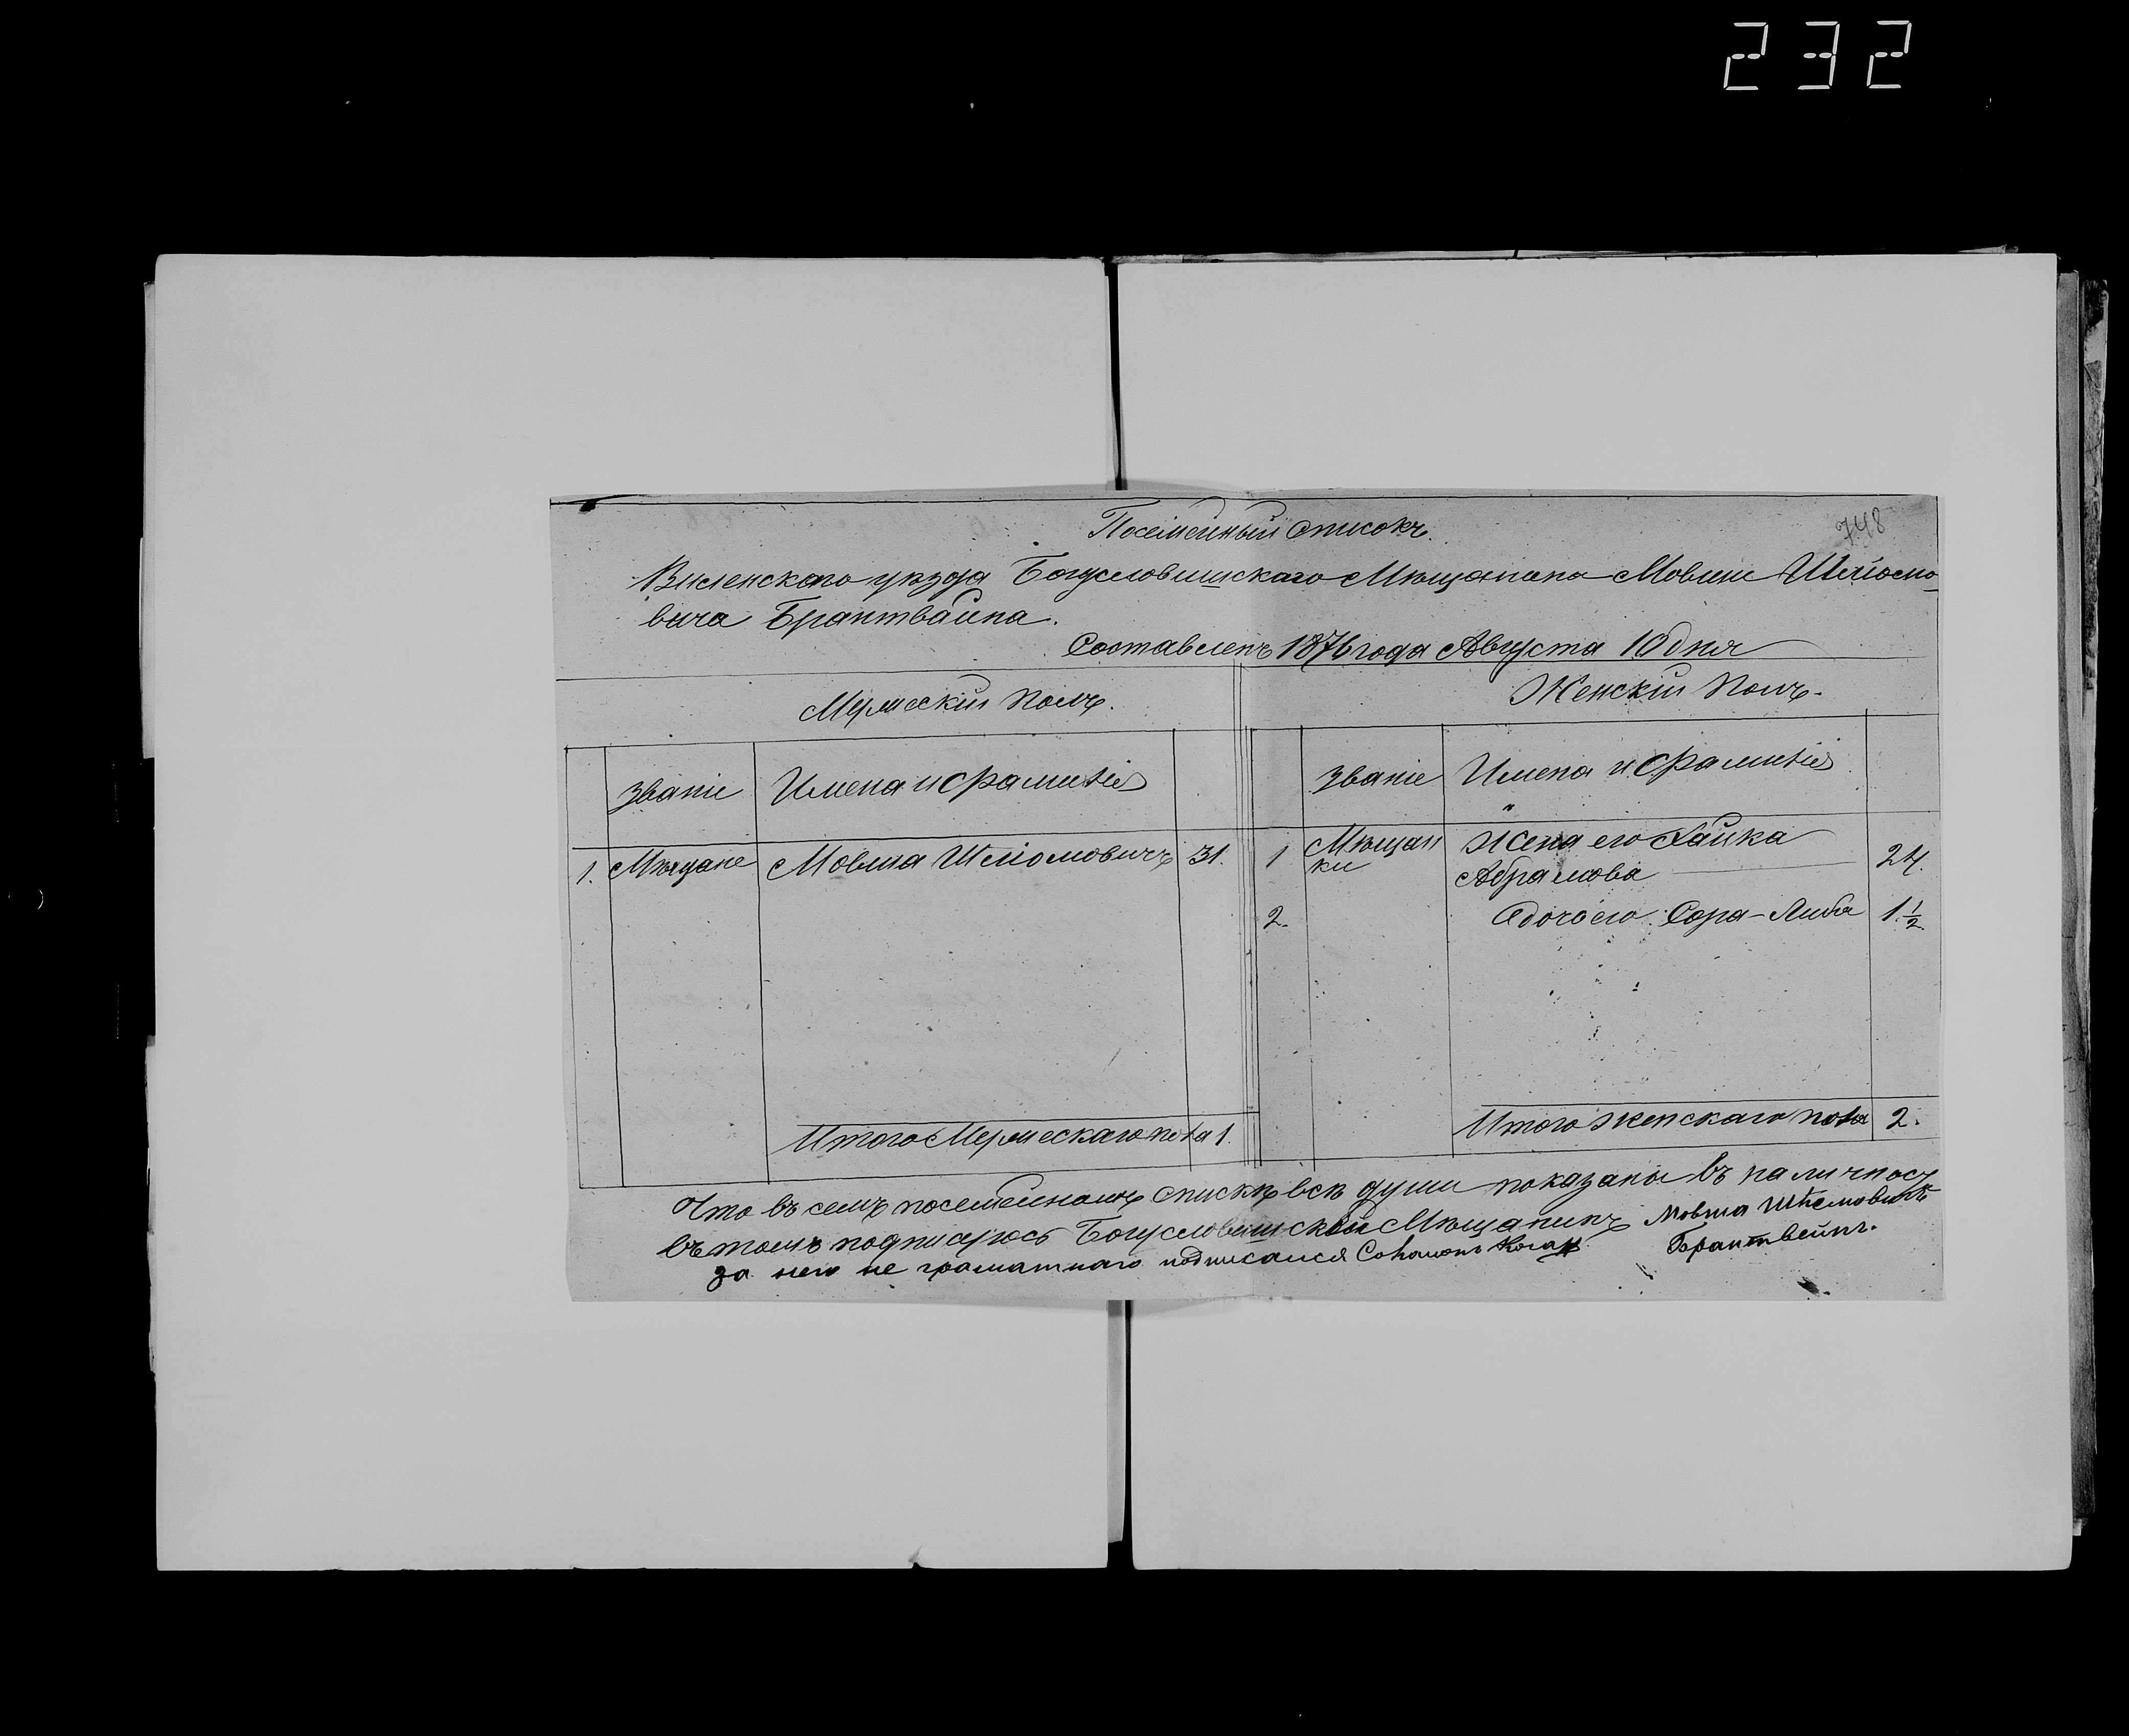 232
748
Посемейный списокъ.
Виленскаго уѣзда Богуславишскаго Мѣщанина Мовши Шліомо-
вича Брантвайна.
Составленъ 1876 года Августа 10 дня
Мужескій Полъ. Женскій Полъ.
званіе Имена и фамиліи званіе Имена и фамиліи
1. Мѣщане Мовша Шліомовичъ 31. 1 Мѣщан Жена его Хайка
ки Абрамова 24.
2. Дочь его Сора-Либа 1 1/2.
Итого Мужескаго пола 1. Итого женскаго пола 2.
Что въ семъ посемейномъ спискѣ всѣ души показаны въ наличнос
въ томъ подписуюсь Богуславишскій Мѣщанинъ Мовша Шлемовичъ
за него не граматнаго подписался Соломонъ Коган Брантвейнъ.